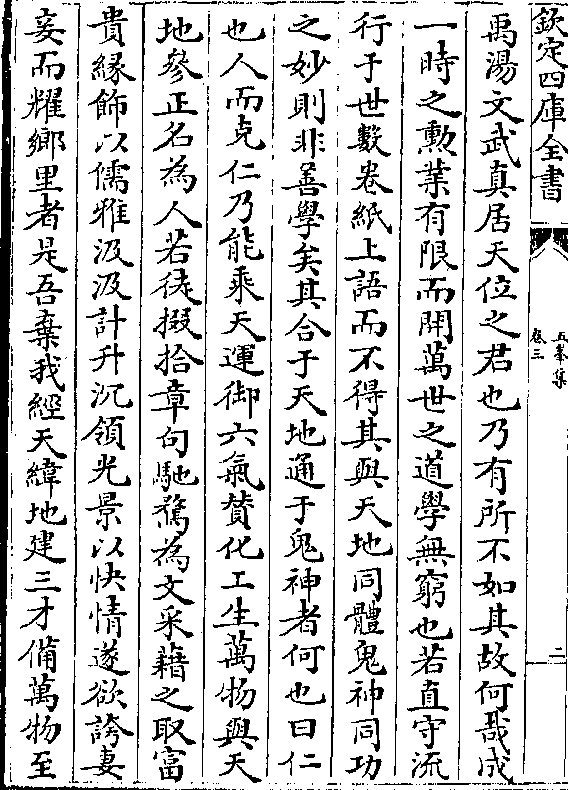 欽定四庫全書
五峯集
卷三
二
禹湯文武真居天位之君也乃有所不如其故何哉成
一時之勲業有限而開萬世之道學無窮也若直守流
行于世數卷紙上語而不得其與天地同體鬼神同功
之妙則非善學矣其合于天地通于鬼神者何也曰仁
也人而克仁乃能乘天運御六氣贊化工生萬物與天
地參正名為人若徒掇拾章句馳騖為文采藉之取富
貴緣飾以儒雅汲汲計升沉領光景以快情遂欲誇妻
妾而耀鄉里者是吾棄我經天緯地建三才備萬物至